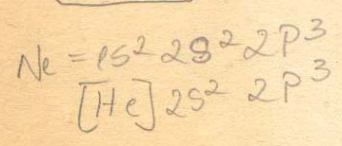 Ne = 1s² 2s² 2p³
[He] 2s² 2p³